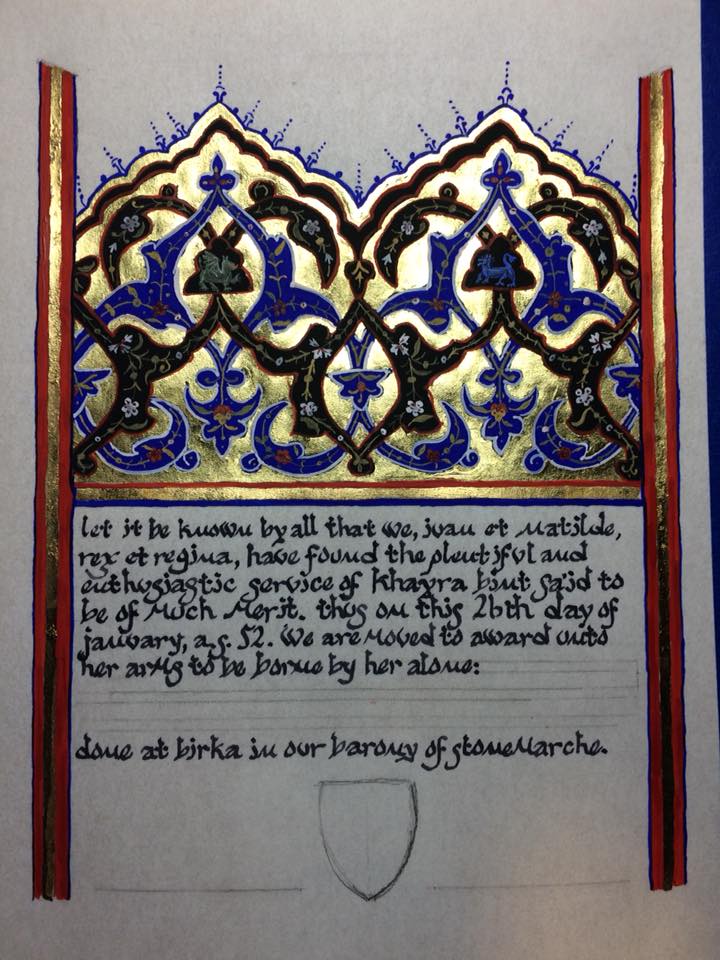 let it be known by all that we, ivan et matilde,
rex et regina, have found the plentiful and
enthusiastic service of Khayra bint Sa'id to
be of Much Merit. thus on this 26th day of
january, a.s. 52. We are Moved to award unto
her arMs to be borne by her alone:
done at birka in our barony of stoneMarche.